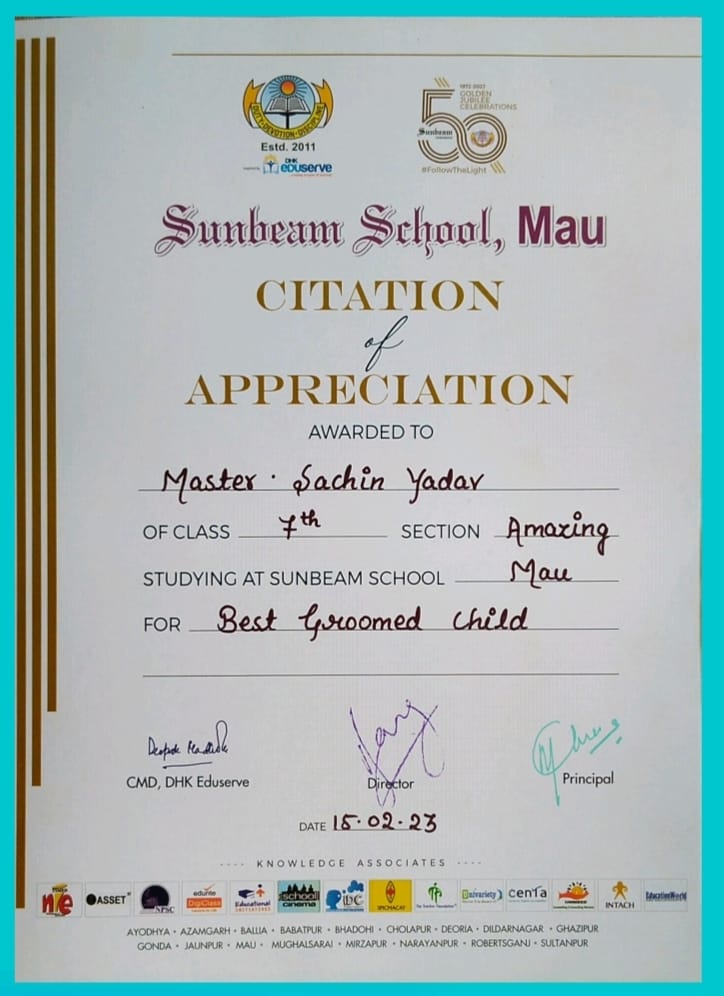 DUTY • DEVOTION • DISCIPLINE
Estd. 2011
DHK
eDUserve
1972-2022
GOLDEN
JUBILEE
CELEBRATIONS
50
Sunbeam
#FollowTheLight
Sunbeam School, Mau
CITATION
of
APPRECIATION
AWARDED TO
Master. Sachin Yadav
OF CLASS 7th SECTION Amazing
STUDYING AT SUNBEAM SCHOOL Mau
FOR Best Groomed Child
CMD, DHK Eduserve
Director
Principal
DATE 15.02.23
---- KNOWLEDGE ASSOCIATES ----
nie
ASSET
NPSC
DigiClass
Educational
INITIATIVES
school
cinema
SPICMACAY
Univariety
centa
INTACH
EducationWorld
AYODHYA • AZAMGARH • BALLIA • BABATPUR • BHADOHI • CHOLAPUR • DEORIA • DILDARNAGAR • GHAZIPUR
GONDA • JAUNPUR • MAU • MUGHALSARAI • MIRZAPUR • NARAYANPUR • ROBERTSGANJ • SULTANPUR